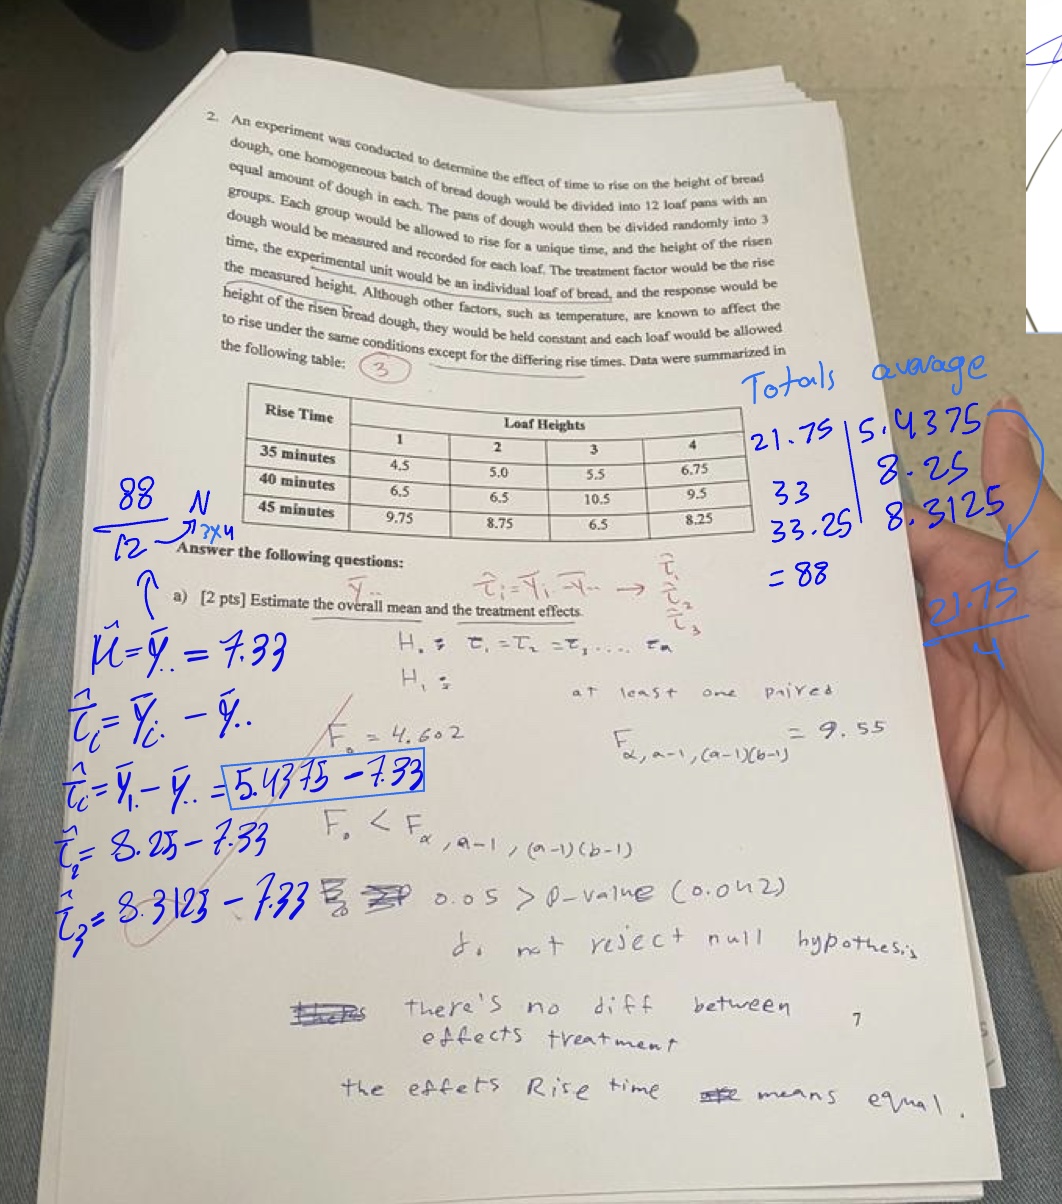 2. An experiment was conducted to determine the effect of time to rise on the height of bread
dough, one homogeneous batch of bread dough would be divided into 12 loaf pans with an
equal amount of dough in each. The pans of dough would then be divided randomly into 3
groups. Each group would be allowed to rise for a unique time, and the height of the risen
dough would be measured and recorded for each loaf. The treatment factor would be the rise
time, the experimental unit would be an individual loaf of bread, and the response would be
the measured height. Although other factors, such as temperature, are known to affect the
height of the risen bread dough, they would be held constant and each loaf would be allowed
to rise under the same conditions except for the differing rise times. Data were summarized in
the following table: 3
Totals avarage
Rise Time Loaf Heights
1 2 3 4
35 minutes 4.5 5.0 5.5 6.75 21.75 5.4375
40 minutes 6.5 6.5 10.5 9.5 33 8.25
45 minutes 9.75 8.75 6.5 8.25 33.25 8.3125
= 88
88/12 N 3x4
21.75/4
Answer the following questions:
ȳ.. τ̂i = ȳi - ȳ.. → τ̂1 τ̂2 τ̂3
a) [2 pts] Estimate the overall mean and the treatment effects.
μ̂ = ȳ.. = 7.33
H. : τ1 = τ2 = τ3 .... τa
H1 :
at least one paired
τ̂i = ȳi. - ȳ..
F. = 4.602
Fα, a-1, (a-1)(b-1) = 9.55
τ̂i = ȳ1. - ȳ.. = 5.4375 - 7.33
F. < Fα, a-1, (a-1)(b-1)
τ̂2 = 8.25 - 7.33
τ̂3 = 8.3123 - 7.33
0.05 > p-value (0.042)
do not reject null hypothesis
there's no diff between
effects treatment
7
the effets Rise time means equal.